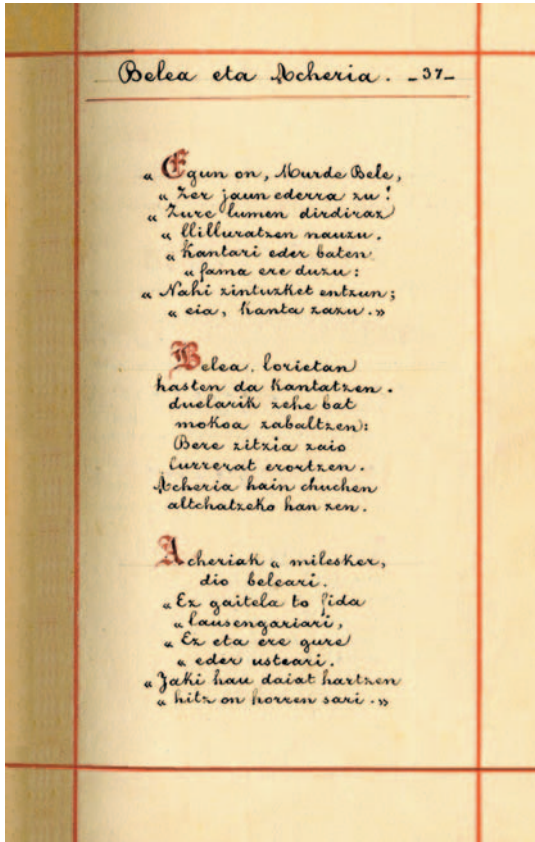 Belea eta Acheria. -37-
« Egun on, Murde Bele,
« Zer jaun ederra zu !
« Zure lumen dirdiraz
« llilluratzen nauzu.
« Kantari eder baten
« fama ere duzu :
« Nahi zintuzket entzun ;
« eia, kanta zazu. »
Belea, lorietan
hasten da kantatzen.
duelarik zehe bat
mokoa zabaltzen :
Bere zitzia zaio
lurrerat erortzen.
Acheria hain chuchen
altchatzeko han zen.
Acheriak « milesker,
dio beleari.
« Ez gaitela to fida
« lausengariari,
« Ez eta ere gure
« eder usteari.
« Jaki hau daiat hartzen
« hitz on horren sari. »